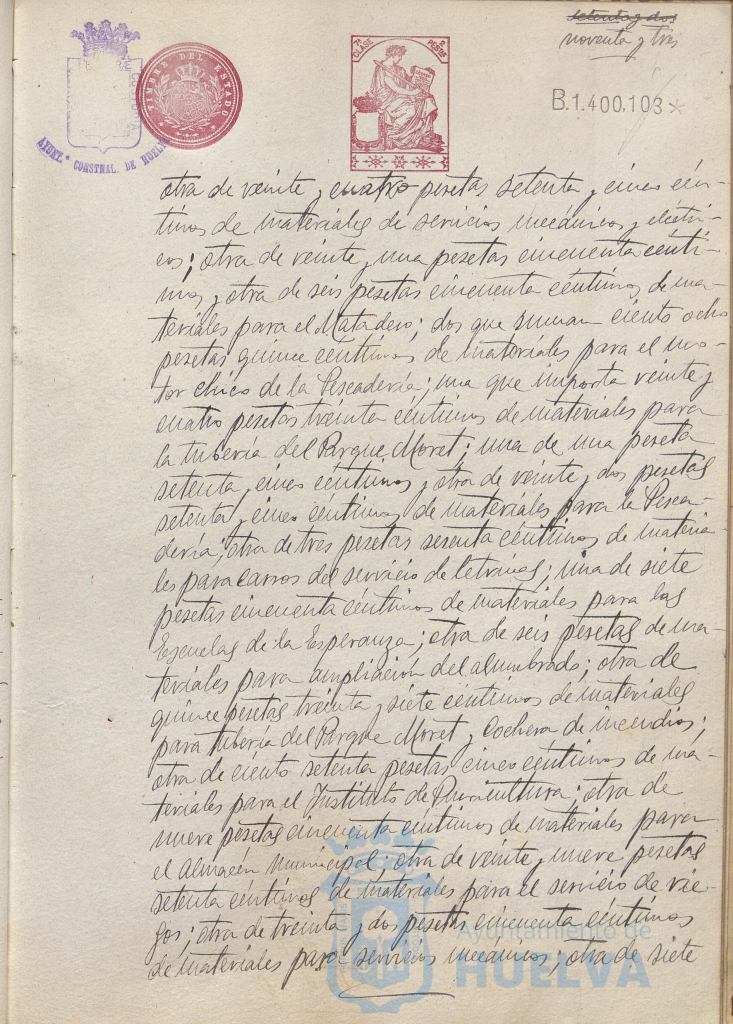 setenta y dos
noventa y tres
TIMBRE DEL ESTADO
7ª CLASE
PESETAS
B.1.400.103*
AYUNT. CONSTNAL. DE HUELVA
otra de veinte y cuatro pesetas setenta y cinco cén-
timos de materiales de servicios mecánicos y eléctri-
cos; otra de veinte y una pesetas cincuenta cénti-
mos y otra de seis pesetas cincuenta céntimos de ma-
teriales para el Matadero; dos que suman ciento ocho
pesetas quince céntimos de materiales para el mo-
tor chico de la Pescadería; una que importa veinte y
cuatro pesetas treinta céntimos de materiales para
la tubería del Parque Moret; una de una peseta
setenta y cinco céntimos y otra de veinte y dos pesetas
setenta y cinco céntimos de materiales para la Pesca-
dería; otra de tres pesetas sesenta céntimos de materia-
les para carros del servicio de letrinas; una de siete
pesetas cincuenta céntimos de materiales para las
Escuelas de la Esperanza; otra de seis pesetas de ma-
teriales para ampliación del alumbrado; otra de
quince pesetas treinta y siete céntimos de materiales
para tubería del Parque Moret y Cochera de incendios;
otra de ciento setenta pesetas cinco céntimos de ma-
teriales para el Instituto de Puericultura; otra de
nueve pesetas cincuenta céntimos de materiales para
el Almacén Municipal; otra de veinte y nueve pesetas
setenta céntimos de materiales para el servicio de rie-
gos; otra de treinta y dos pesetas cincuenta céntimos
de materiales para servicios mecánicos; otra de siete
Ayuntamiento de
HUELVA